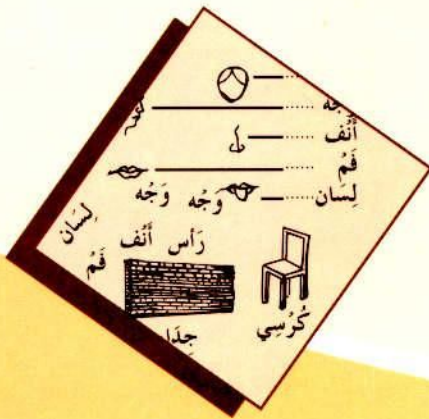 وَجْه
أَنْف
فَمُ
لِسَان
وجْه وَجْه
رَأس أَنْف
لِسَان
فَمُ
كُرْسِي